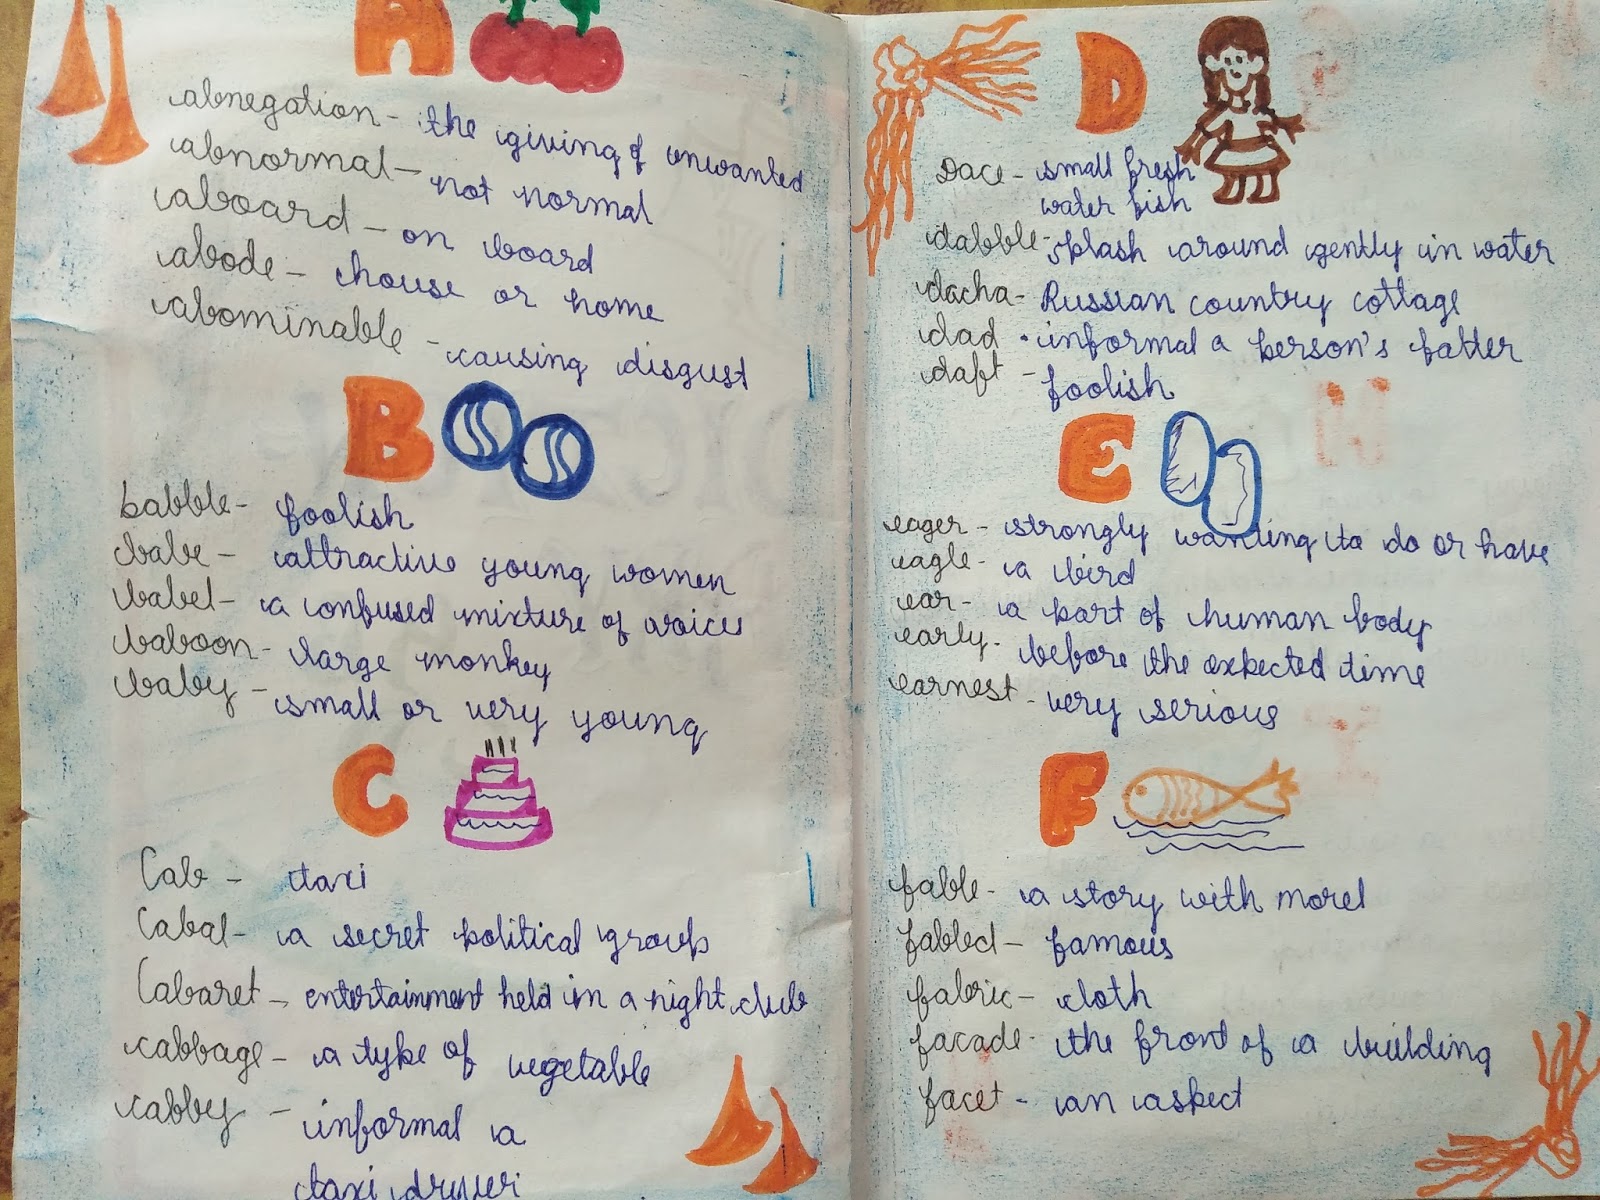 A
abnegation - the giving of unwanted
abnormal - not normal
aboard - on board
abode - house or home
abominable - causing disgust
B
babble - foolish
babe - attractive young women
babel - a confused mixture of voices
baboon - large monkey
baby - small or very young
C
Cab - taxi
Cabal - a secret political group
Cabaret - entertainment held in a night club
cabbage - a type of vegetable
cabby - informal a
taxi driver
D
Dace - small fresh
water fish
dabble - splash around gently in water
dacha - Russian country cottage
dad - informal a person's fatter
daft - foolish
E
eager - strongly wanting to do or have
eagle - a bird
ear - a part of human body
early - before the expected time
earnest - very serious
F
fable - a story with morel
fabled - famous
fabric - cloth
facade - the front of a building
facet - an aspect